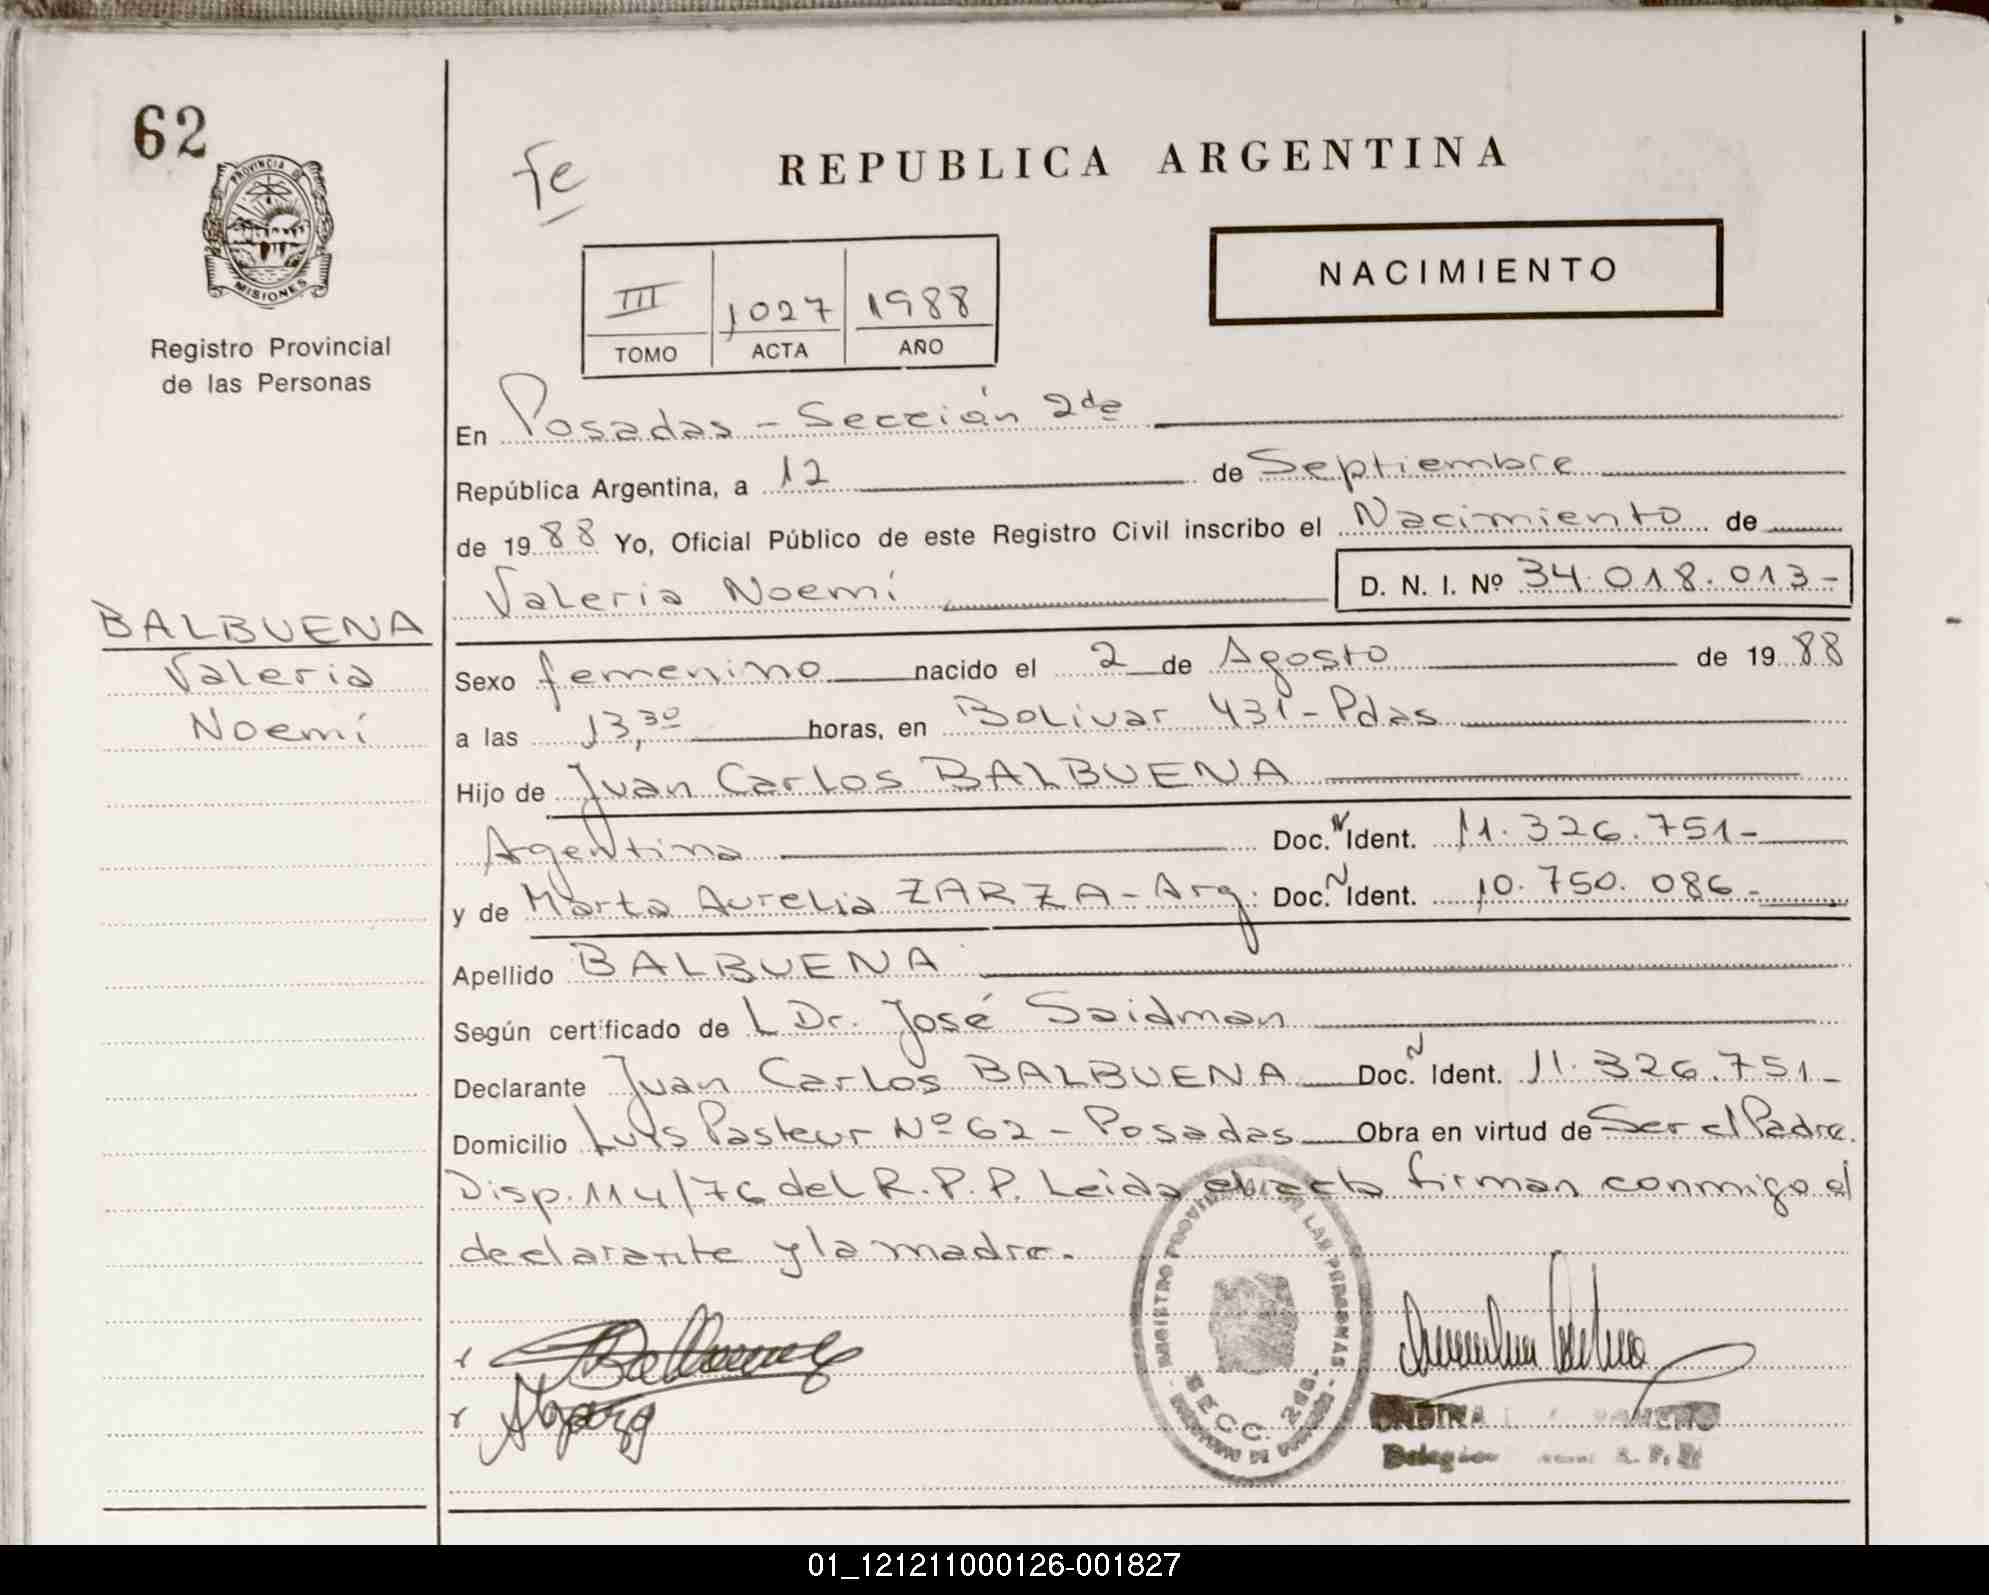 62
PROVINCIA DE
MISIONES
Registro Provincial
de las Personas
fe
REPUBLICA ARGENTINA
NACIMIENTO
III 1027 1988
TOMO ACTA AÑO
En Posadas - Sección 2da
República Argentina, a 12 de Septiembre
de 1988 Yo, Oficial Público de este Registro Civil inscribo el Nacimiento de
Valeria Noemí D. N. I. Nº 34.018.013-
BALBUENA
Valeria
Noemí
Sexo femenino nacido el 2 de Agosto de 1988
a las 13,30 horas, en Bolivar 431 - Pdas
Hijo de Juan Carlos BALBUENA
Argentina Doc. N Ident. 11.326.751-
y de Marta Aurelia ZARZA - Arg. Doc. N Ident. 10.750.086-
Apellido BALBUENA
Según certificado de L Dr. José Saidman
Declarante Juan Carlos BALBUENA Doc. N Ident. 11.326.751-
Domicilio Luis Pasteur Nº 62 - Posadas Obra en virtud de Ser el Padre.
Disp. 114/76 del R.P.P. Leida el acta firman conmigo el
declarante y la madre.
REGISTRO PROVINCIAL DE LAS PERSONAS
SECC. 2da.
Balbuena
01_121211000126-001827